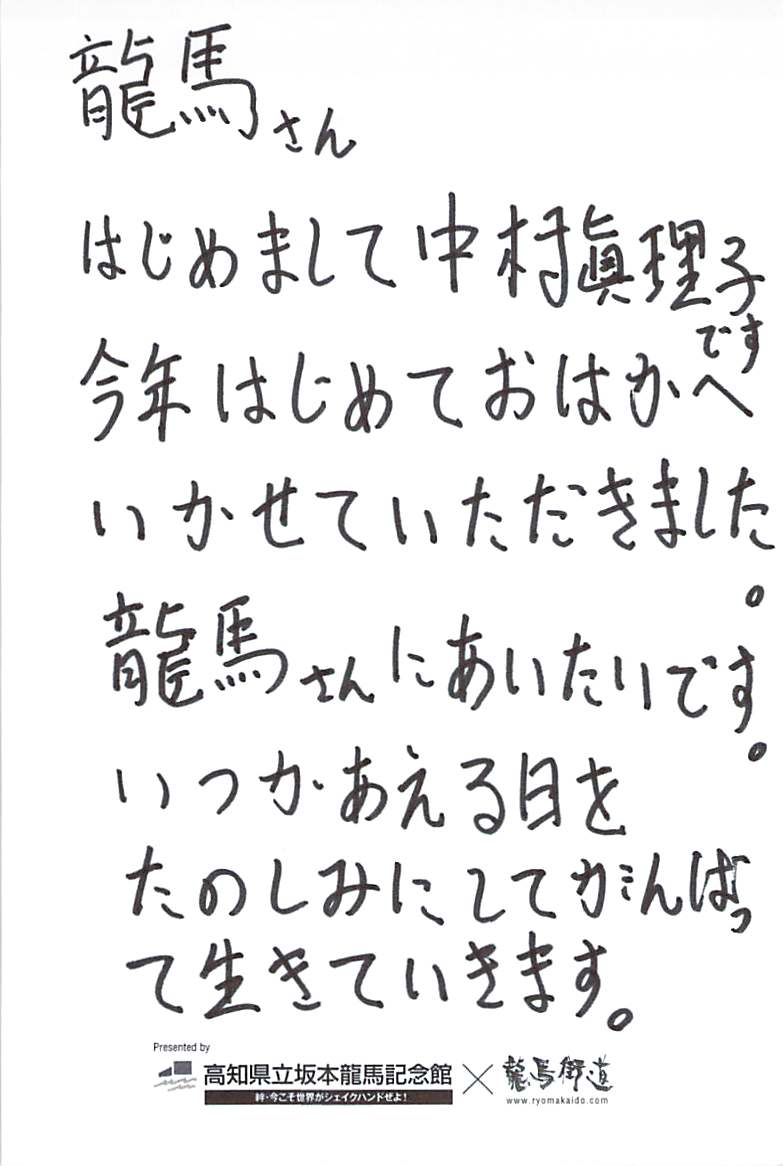 龍馬さん
はじめまして中村眞理子
です
今年はじめておはかへ
いかせていただきました。
龍馬さんにあいたいです。
いつかあえる日を
たのしみにしてがんばっ
て生きていきます。
Presented by
高知県立坂本龍馬記念館
絆・今こそ世界がシェイクハンドぜよ!
×
龍馬街道
www.ryomakaido.com